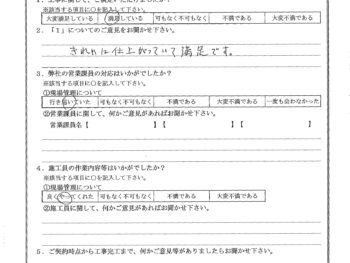 １．工事に関して、ご満足いただけましたか？
※該当する項目に○を記入して下さい。
大変満足している 満足している 可もなく不可もなく 不満である 大変不満である
２．「１」についてのご意見をお聞かせ下さい。
きれいに仕上がっていて満足です。
３．弊社の営業課員の対応はいかがでしたか？
※該当する項目に○を記入して下さい。
①現場管理について
行き届いていた 可もなく不可もなく 不満である 大変不満である 一度も会わなかった
②営業課員に関して、何かご意見があればお聞かせ下さい。
営業課員名【 】【 】【 】
４．施工員の作業内容等はいかがでしたか？
※該当する項目に○を記入して下さい。
①現場管理について
良くやってくれた 可もなく不可もなく 不満である 大変不満である
②施工員に関して、何かご意見があればお聞かせ下さい。
５．ご契約時点から工事完工まで、何かご意見等がありましたらお聞かせ下さい。